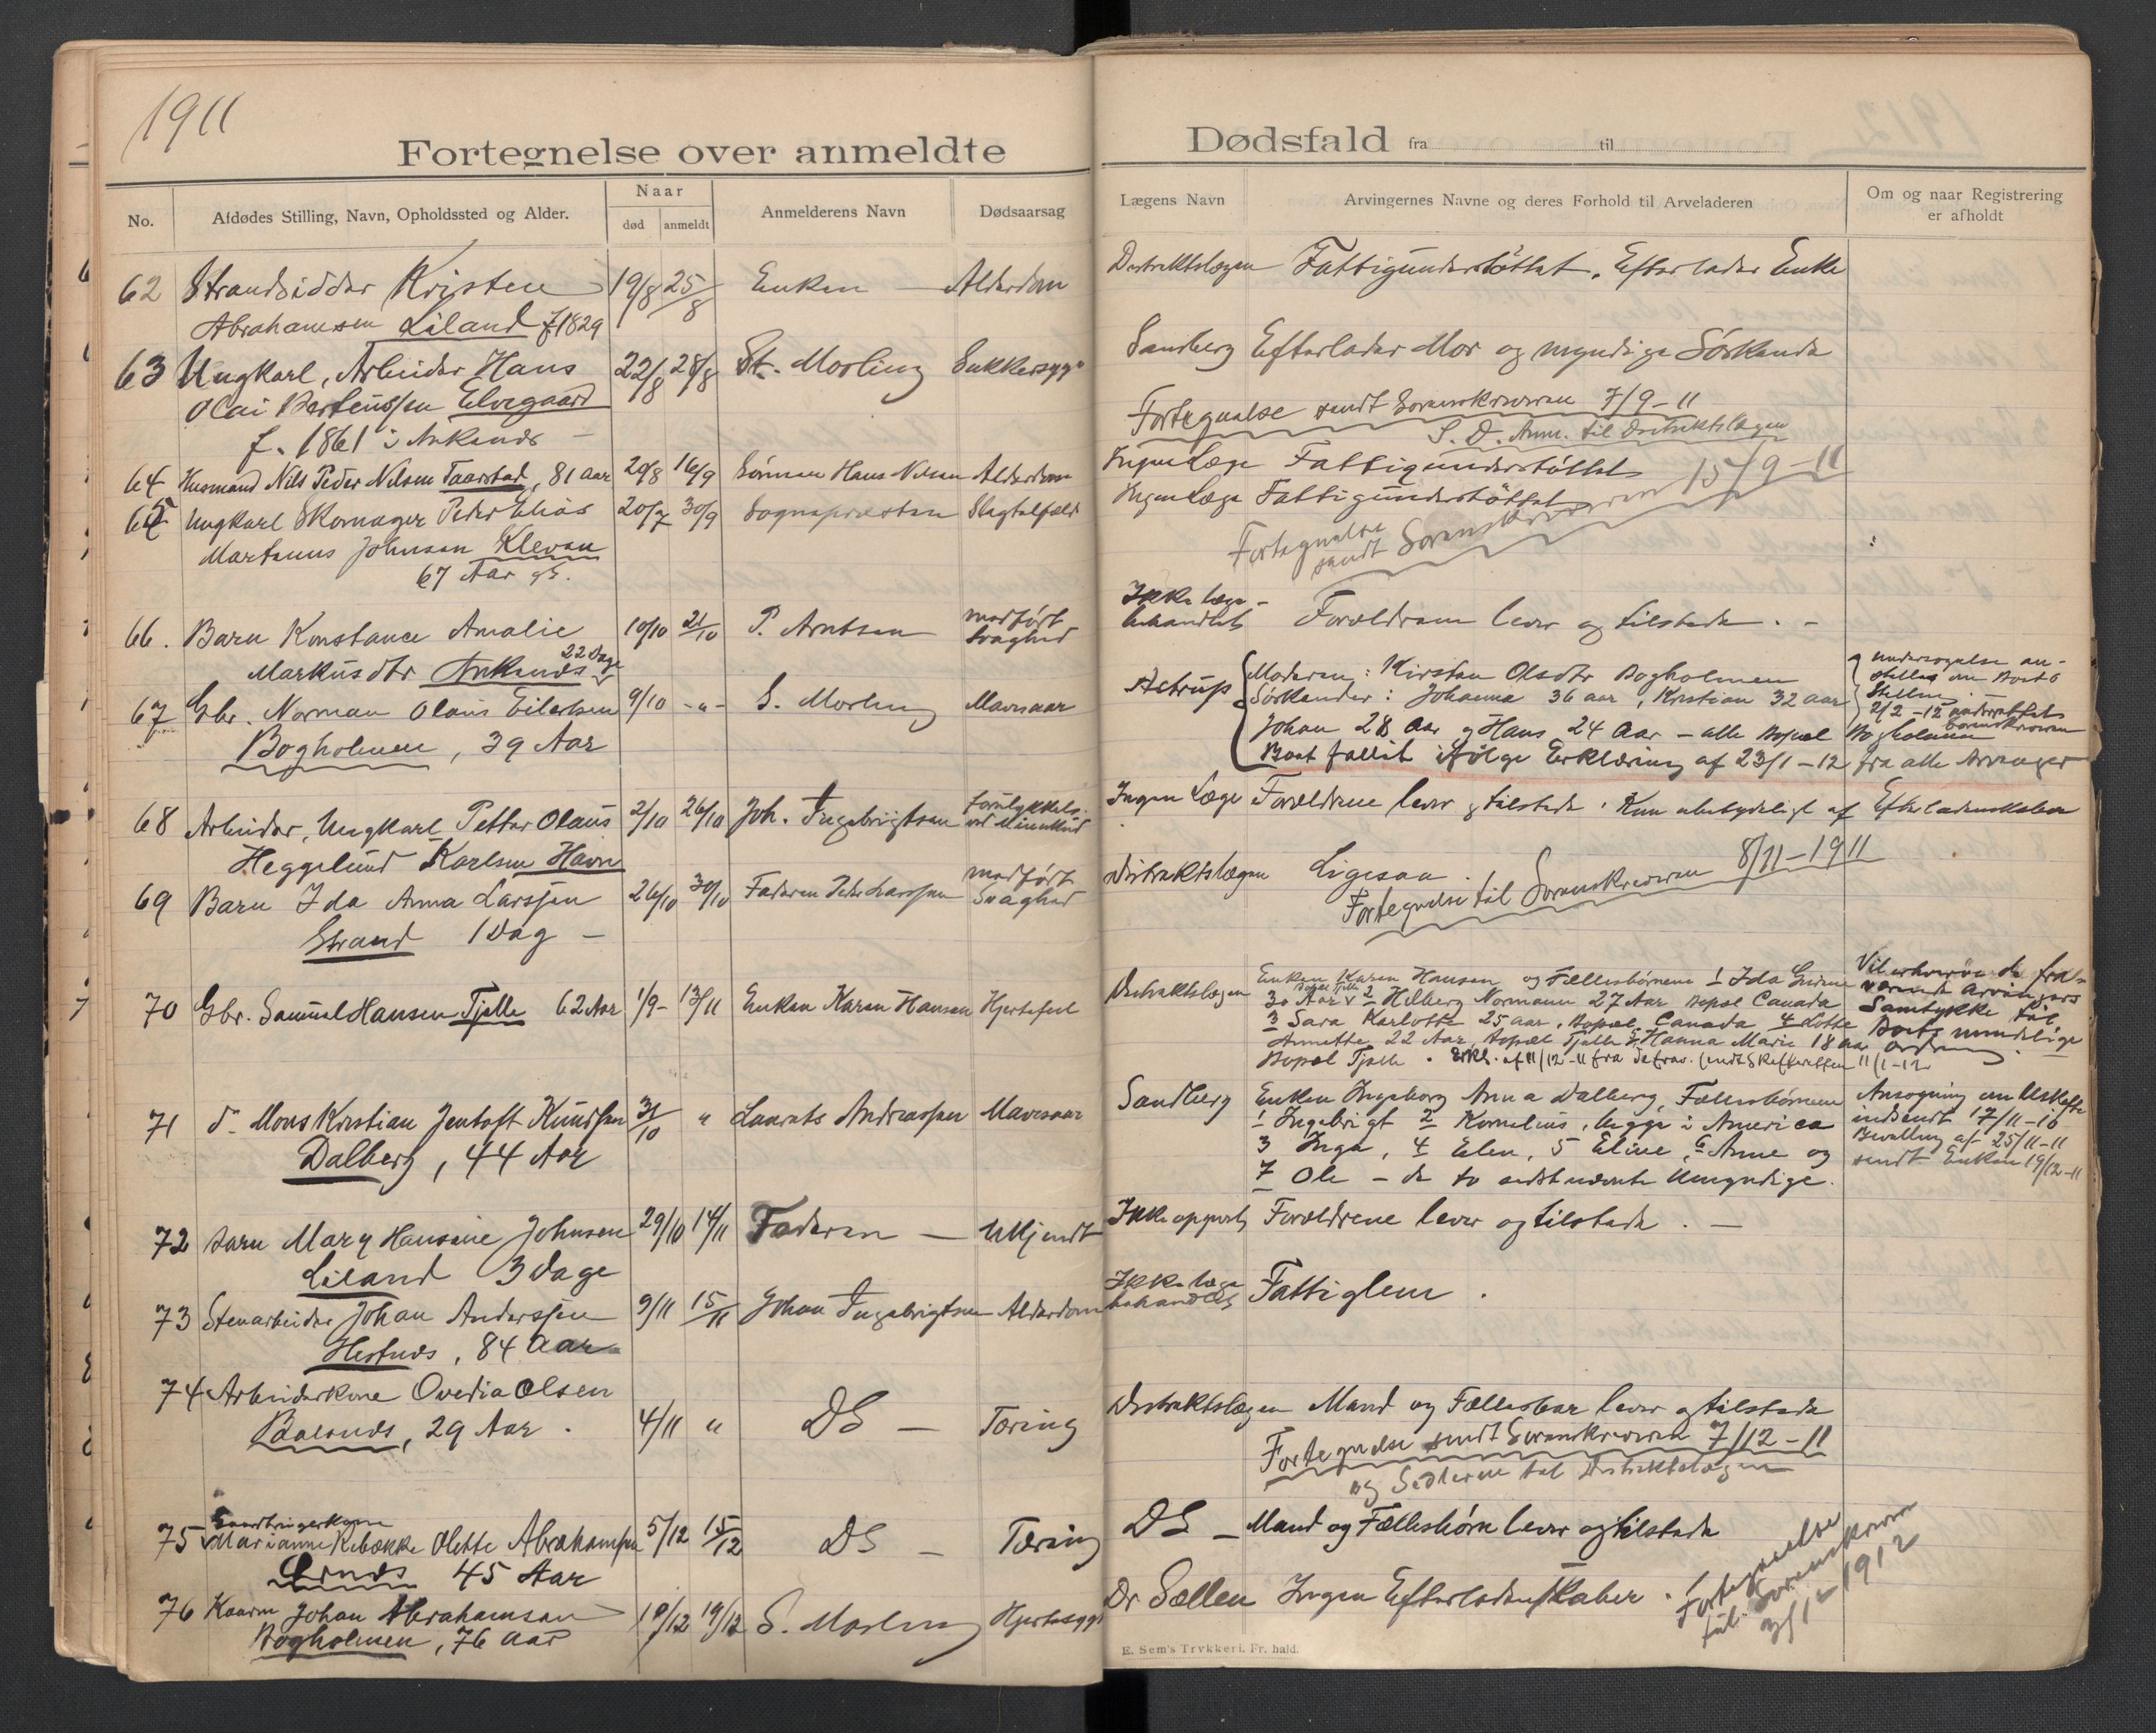 1911
Fortegnelse over anmeldte
Dødsfald fra til
No.
Afdødes Stilling, Navn, Opholdssted og Alder.
Naar
død anmeldt
Anmelderens Navn
Dødsaarsag
Lægens Navn
Arvingernes Navne og deres Forhold til Arveladeren
Om og naar Registrering
er afholdt
62 Strandsidder Kristen 19/8 25/8 Enken — Alderdom Distriktslægen Fattigunderstöttet. Efterlader Enke
Abrahamsen Liland f 1829
63 Ungkarl, Arbeider Hans 22/8 28/8 St. Morling Sukkersyge Sandberg Efterlader Mor og myndige Söskende
Olai Bertenssen Elvegaard
f. 1861 i Ankenæs —
Fortegnelse sendt Sorenskriveren 7/9-11
S. D. Anm. til Distriktslægen
64 Husmand Nils Peder Nilsen Taarstad, 81 aar 20/8 16/9 Sönnen Hans Nilsen Alderdom Ingen Læge Fattigunderstöttet
65 Ungkarl Skomager Peder Elias 20/7 30/9 Sognepræsten Slagtilfæld Ingen Læge Fattigunderstöttet
Martenus Johnsen Kleven
67 Aar gl.
Fortegnelse sendt Sorenskriveren 15/9-11
66. Barn Konstance Amalie 10/10 21/10 P. Arntsen medfödt Svaghed Ikke lægebehandlet Forældrene lever og tilstede. —
Markusdtr Ankenæs 22 Dage
67 Gbr. Norman Olaus Eilertsen 9/10 -"- S. Morling Mavesaar Astrup Moderen: Kirsten Olsdtr Bogholmen
Bogholmen, 39 Aar
Söskender: Johanna 36 aar, Kristian 32 aar
Johan 28 aar og Hans 24 aar — alle Bopæl Bogholmen
Boet fallit ifölge Erklæring af 23/1-12 fra alle Arvinger
undersögelse anstilles om Boets
Stilling. —
2/2-12 underrettet Sorenskriveren
68 Arbeider, Ungkarl Petter Olaus 2/10 26/10 Joh. Ingebrigtsen forulykket ved Mineskud Ingen Læge Forældrene lever og tilstede. Kun ubetydeligt af Efterladenskaber
Heggelund Karlsen Havn
69 Barn Ida Anna Larssen 26/10 30/10 Faderen Peder Larssen medfödt Svaghed Distriktslægen Ligesaa.
Strand 1 Dag —
Fortegnelse til Sorenskriveren 8/11-1911
70 Gbr. Samuel Hansen Tjelle 62 Aar 1/9- 13/11 Enken Karen Hansen Hjertefeil Distriktslægen Enken Karen Hansen og Fællesbörnene 1 Ida
30 Aar Bopæl Tjelle 2 Hilberg Normann 27 Aar Bopæl Canada
3 Sara Karlotte 25 aar, Bopæl Canada 4 Lotte
Annette 22 Aar, Bopæl Tjelle 5 Hanna Marie 18 aar
Bopæl Tjelle. Erkl. af 11/12-11 fra de frav. sendt Skifteretten 11/1-12
Vil erhverve de fraværende Arvingers
Samtykke til
Boets mindelige
ordning.
71 d- Mons Kristian Jentoft Knudsen 31/10 " Laurits Andreassen Mavesaar Sandberg Enken Ingeborg Anna Dalberg, Fællesbörnene
Dalberg, 44 Aar
1 Ingebrigt 2 Kornelius, begge i America
3 Inga, 4 Elen, 5 Eline, 6 Anne og
7 Ole — de to sidstnævnte Umyndige.
Ansögning om Uskifte
indsendt 17/11-10
Bevilling af 25/11-11
sendt Enken 19/12-11
72 Barn Mary Hansine Johnsen 29/10 14/11 Faderen — Ukjendt Ikke opgivet Forældrene lever og tilstede. —
Liland 3 Dage
73 Stenarbeider Johan Anderssen 9/11 15/11 Johan Ingebrigtsen Alderdom Ikke lægebehandlet Fattiglem.
Hestnes, 84 Aar
74 Arbeiderkone Ovedia Olsen
Balsnes, 29 Aar. 4/11 " DS — Tæring Distriktslægen Mand og Fællesbar lever og tilstede
Fortegnelse sendt Sorenskriveren 7/12-11
og Sedlerne til Distriktslægen
75 Gaardbrugerkone
Marianne Rebekke Olette Abrahamsen 5/12 15/12 DS — Tæring DS — Mand og Fællesbörn lever og tilstede
45 Aar
76 Kaarm Johan Abrahamsen 18/12 19/12 S. Morling Hjertesygd Dr Sællen Ingen Efterladenskaber.
Bogholmen, 76 aar
Fortegnelse
til Sorenskriveren
3/1-1912
E. Sem's Trykkeri. Fr. hald.